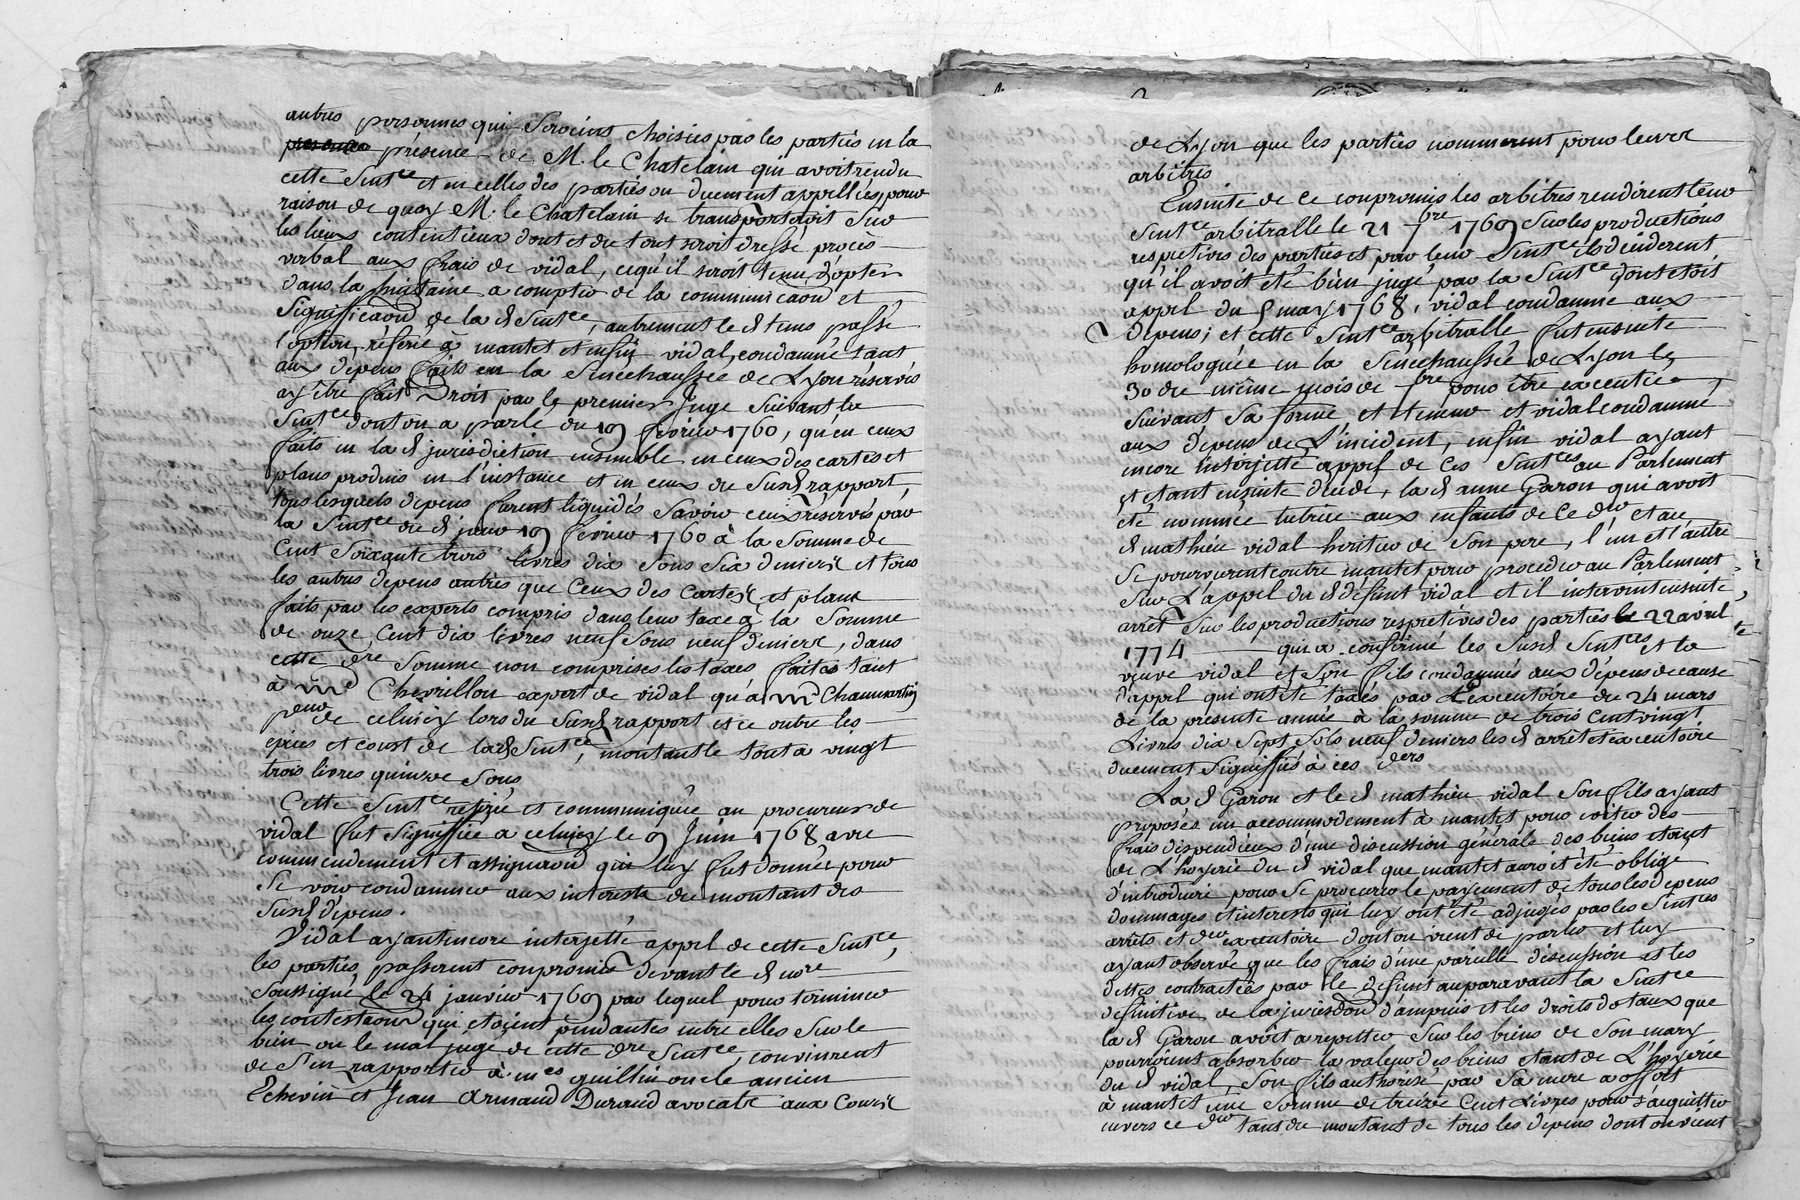 autres personnes qui seroient choisies par les parties en la
présence de M. le Chatelain qui avoit rendu
cette Sent.ce et en celles des parties ou duement appellées, pour
raison de quoy M. le Chatelain se transporteroit sur
les lieux contentieux dont et du tout seroit dressé procès
verbal aux frais de vidal, ce qu'il seroit tenu d'opter
dans la huitaine a compter de la communicaon et
Significaon de la d Sent.ce, autrement le d tems passé
l'option référée à mantet et enfin vidal, condamné tant
aux dépens faits en la Sénéchaussée de Lyon réservés
ay être fait Droit par le premier Juge suivant la
Sent.ce dont on a parlé du 19 février 1760, qu'en ceux
faits en la d jurisdiction ensemble en ceux des cartes et
plans produis en l'instance et en ceux du Susd rapport,
tous lesquels dépens furent liquidés Savoir ceux réservés par
la Sent.ce du d jour 19 février 1760 à la Somme de
Cent Soixante trois livres dix Sous Six deniers et tous
les autres dépens autres que ceux des cartes et plans
faits par les experts compris dans leur taxe à la Somme
de onze Cent dix livres neuf Sous neuf deniers, dans
cette d.re Somme non comprises les taxes faites tant
à m.e Chevrillon expert de vidal qu'à m.e Chaumartin
p.eur de celuicy lors du Susd rapport et ce outre les
epices et coust de la d Sent.ce, montant le tout à vingt
trois livres quinze Sous
Cette Sent.ce et communiquée au procureur de
vidal fut Signiffiée a celuicy le 9 Juin 1768 avec
commendement et assignaon qui luy fut donnée pour
Se voir condamner aux interests du montant des
Susd dépens.
Vidal ayant encore interjetté appel de cette Sent.ce,
les parties passerent compromis devant le d no.re
Soussigné le 24 janvier 1769 par lequel pour terminer
les contestaons qui etoient pendantes entre elles Sur le
bien ou le mal jugé de cette d.re Sent.ce, convinrent
de S'en rapporter à m.es guillin ancien
Echevin et Jean Armand Durand avocats aux Cours
de Lyon que les parties nommerent pour leurs
arbitres
Ensuite de ce compromis les arbitres rendirent leur
Sent.ce arbitralle le 21 7.bre 1769 Sur les productions
respectives des parties et par leur Sent.ce ils déciderent
qu'il avoit été bien jugé par la Sent.ce dont etoit
appel du 5 may 1768, vidal condamné aux
dépens; et cette Sent.ce arbitralle fut ensuite
homologuée en la Sénéchaussée de Lyon le
30 du même mois de 7.bre pour être executée
Suivant Sa forme et teneur et vidal condamné
aux dépens de L'incident, enfin vidal ayant
encore interjetté appel de ces Sent.ces au Parlement
et etant ensuite décédé, la d anne Garon qui avoit
été nommée tutrice aux enfants de ce d.er et au
d mathieu vidal heritier de Son pere, l'un et l'autre
Se pourvurent contre mantet pour proceder au Parlement
Sur L'appel du d défunt vidal et il intervint ensuite
arrêt Sur les productions respectives des parties le 22 avril
1774 qui a confirmé les Susd Sent.ces et la
veuve vidal et Son fils condamnés aux dépens de cause
d'appel qui ont été taxés par L'executoire du 24 mars
de la présente année à la somme de trois Cent vingt
Livres dix Sept Sols neuf deniers les d arrêt et executoire
duement Signiffiés à ces d.ers
La d Garon et le d mathieu vidal Son fils ayant
proposés un accommodement à mantet pour eviter des
frais dispendieux d'une discussion générale des biens etant
de L'hoyerie du d vidal que mantet auroit été obligé
d'introduire pour Se procurer le payement de tous les dépens
dommages et interests qui luy ont été adjugés par les Sent.ces
arrêts et d.er executoire dont on vient de parler et luy
ayant observé que les frais d'une pareille discussion et les
dettes contractées par le defunt auparavant la Sent.ce
définitive de la jurisdon d'ampuis et les droits dotaux que
la d Garon avoit a repetter Sur les biens de Son mary
pourroient absorber la valeur des biens etant de L'hoyerie
du d vidal, Son fils authorisé par Sa mere a offert
à mantet une Somme de treize Cent Livres pour s'acquitter
envers ce d.er tant du montant de tous les dépens dont on vient